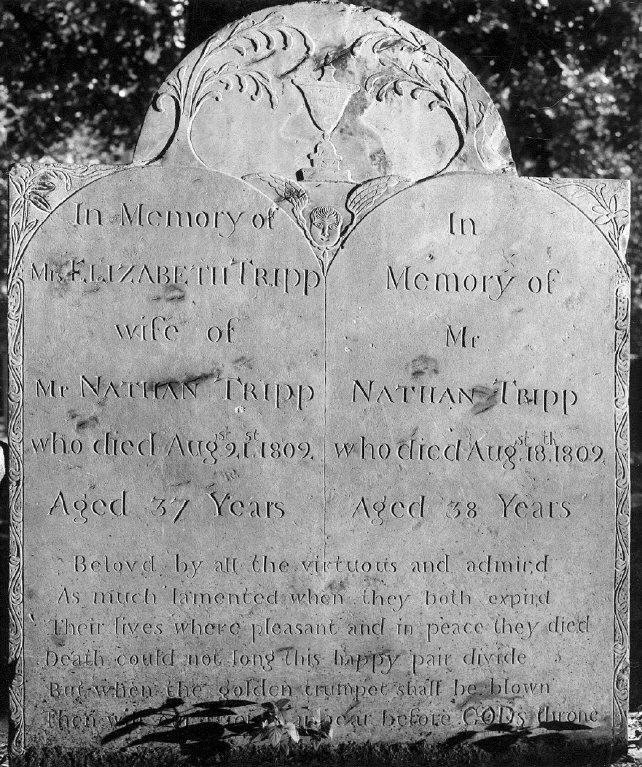 In Memory of
Mrs ELIZABETH TRIPP
wife of
Mr NATHAN TRIPP
who died Augst 21st 1809.
Aged 37 Years
In
Memory of
Mr
NATHAN TRIPP
who died Augst 18th 1809
Aged 38 Years
Belovd by all the virtuous and admird
As much lamented when they both expird
Their lives where pleasant and in peace they died
Death could not long this happy pair divide
But when the golden trumpet shall be blown
Then will appear before GODs throne